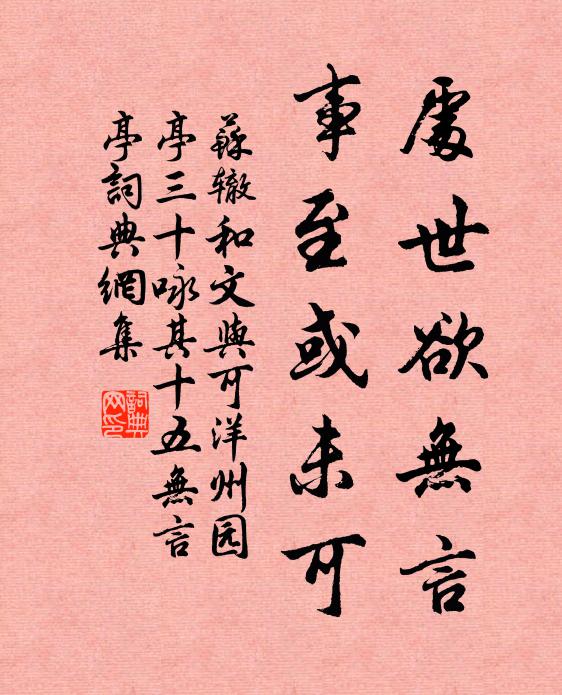 處世欲無言
事至或未可
蘇辙和文與可洋州园
亭三十咏其十五無言
亭詞典網集
詞典
网印